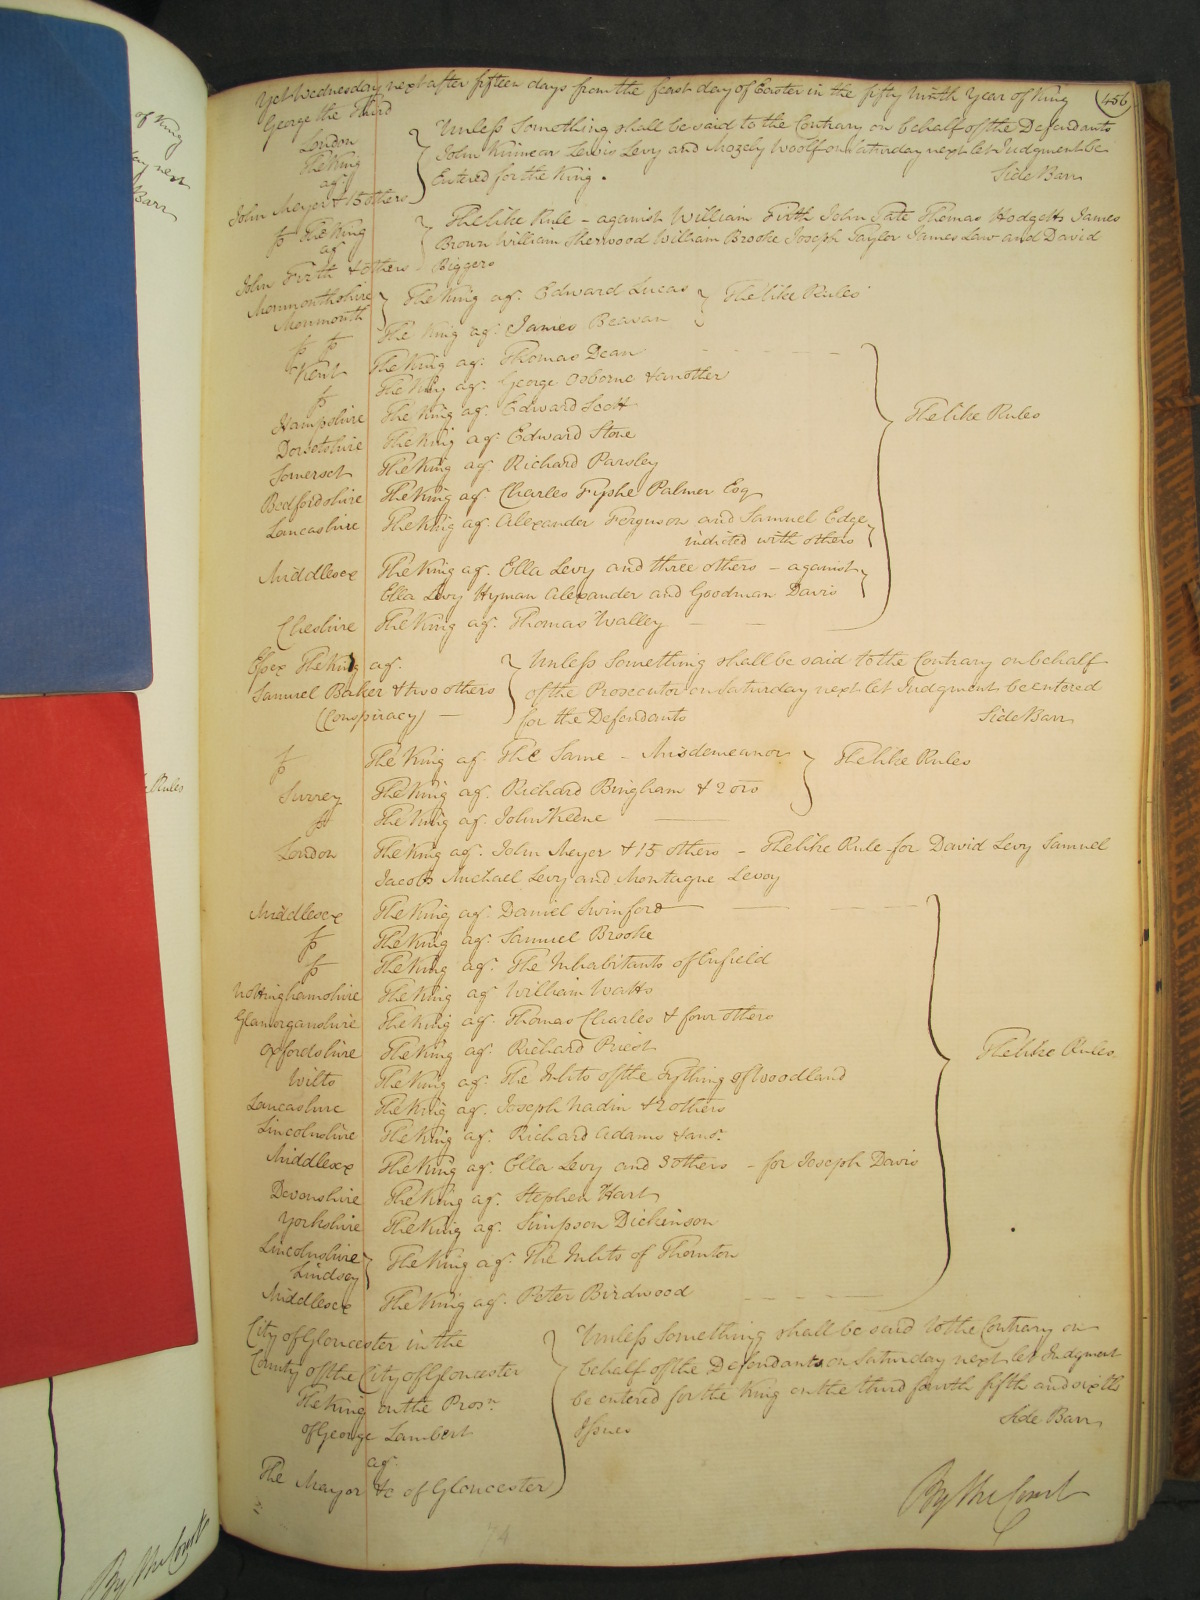 Yet Wednesday next after fifteen days from the feast day of Easter in the fifty ninth Year of King 456
George the Third
London
The King
agt.
John Meyer & 15 others
Unless Something shall be said to the Contrary on behalf of the Defendants
John Kinnear Lewis Levy and Mozely Woolf on Saturday next let Judgment be
Entered for the King. Side Barr
fo The King
agt
John Firth & others
The like Rule - against William Firth John Tate Thomas Hodgetts James
Brown William Sherwood William Brooke Joseph Taylor James Law and David
Biggers
Monmouthshire The King agt. Edward Lucas The like Rules
Monmouth
fo fo The King agt. James Beavan
Kent The King agt. Thomas Dean
fo The King agt. George Osborne & another
Hampshire The King agt. Edward Scott
Dorsetshire The King agt. Edward Stone
Somerset The King agt Richard Parsley
Bedfordshire The King agt Charles Fyshe Palmer Esq
Lancashire The King agt. Alexander Ferguson and Samuel Edge
indicted with others
The like Rules
Middlesex The King agt. Ella Levy and three others - against
Ella Levy Hyman Alexander and Goodman Davis
Cheshire The King agt. Thomas Walley
Essex The King agt.
Samuel Baker & two others
(Conspiracy)
Unless Something shall be said to the Contrary on behalf
of the Prosecutor on Saturday next let Judgment be entered
for the Defendants Side Barr
fo The King agt The Same - Misdemeanor The like Rules
Surrey The King agt. Richard Bingham & 2 ors
fo The King agt. John Keene
London The King agt. John Meyer & 15 others - The like Rule for David Levy Samuel
Jacobs Michael Levy and Montague Levoy
Middlesex The King agt. Daniel Swinford
fo The King agt. Samuel Brooke
fo The King agt. The Inhabitants of Enfield
Nottinghamshire The King agt William Watts
Glamorganshire The King agt. Thomas Charles & four others
Oxfordshire The King agt. Richard Priest The like Rules
Wilts The King agt. The Inhits of the Tything of Woodland
Lancashire The King agt. Joseph Nadin & 2 others
Lincolnshire The King agt. Richard Adams & anor.
Middlesex The King agt. Ella Levy and 3 others - for Joseph Davis
Devonshire The King agt. Stephen Hart
Yorkshire The King agt. Simpson Dickinson
Lincolnshire The King agt. The Inhits of Thornton
Lindsey
Middlesex The King agt. Peter Birdwood
City of Gloucester in the
County of the City of Gloucester
The King on the Prosn.
of George Lambert
agt.
The Mayor &c of Gloucester
Unless Something shall be said to the Contrary on
behalf of the Defendants on Saturday next let Judgment
be entered for the King on the third fourth fifth and sixth
Issues Side Barr
By the Court
of King
day next
Barr
Rules
By the Court